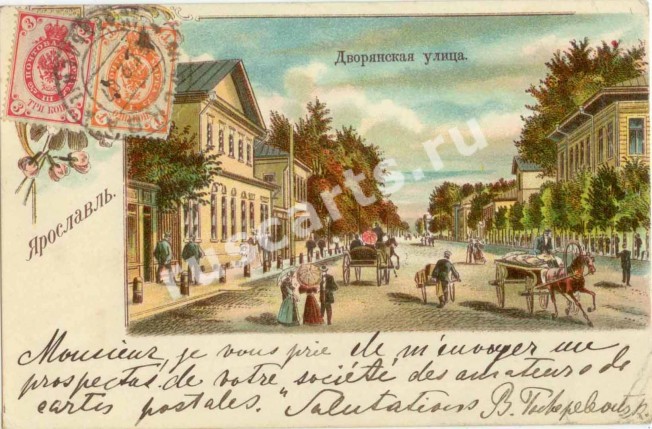 Дворянская улица.
Ярославль.
ruscarts.ru
3 3
ТРИ КОП
3
Monsieur, je vous prie de m'envoyer un
prospectus de votre société des amateurs de
cartes postales. Salutations B.